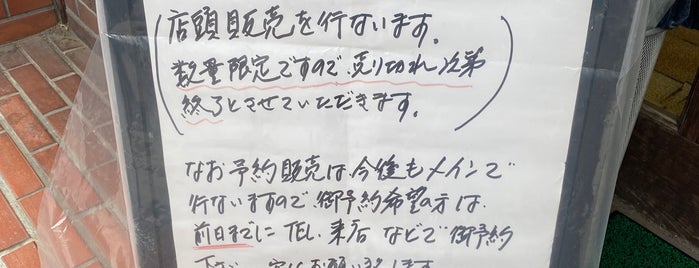 店頭販売を行ないます。
数量限定ですので、売り切れ次第
終了とさせていただきます。
なお予約販売は今後もメインで
行ないますので御予約希望の方は、
前日までに TEL、来店 などで御予約
下さい。 お願い致します